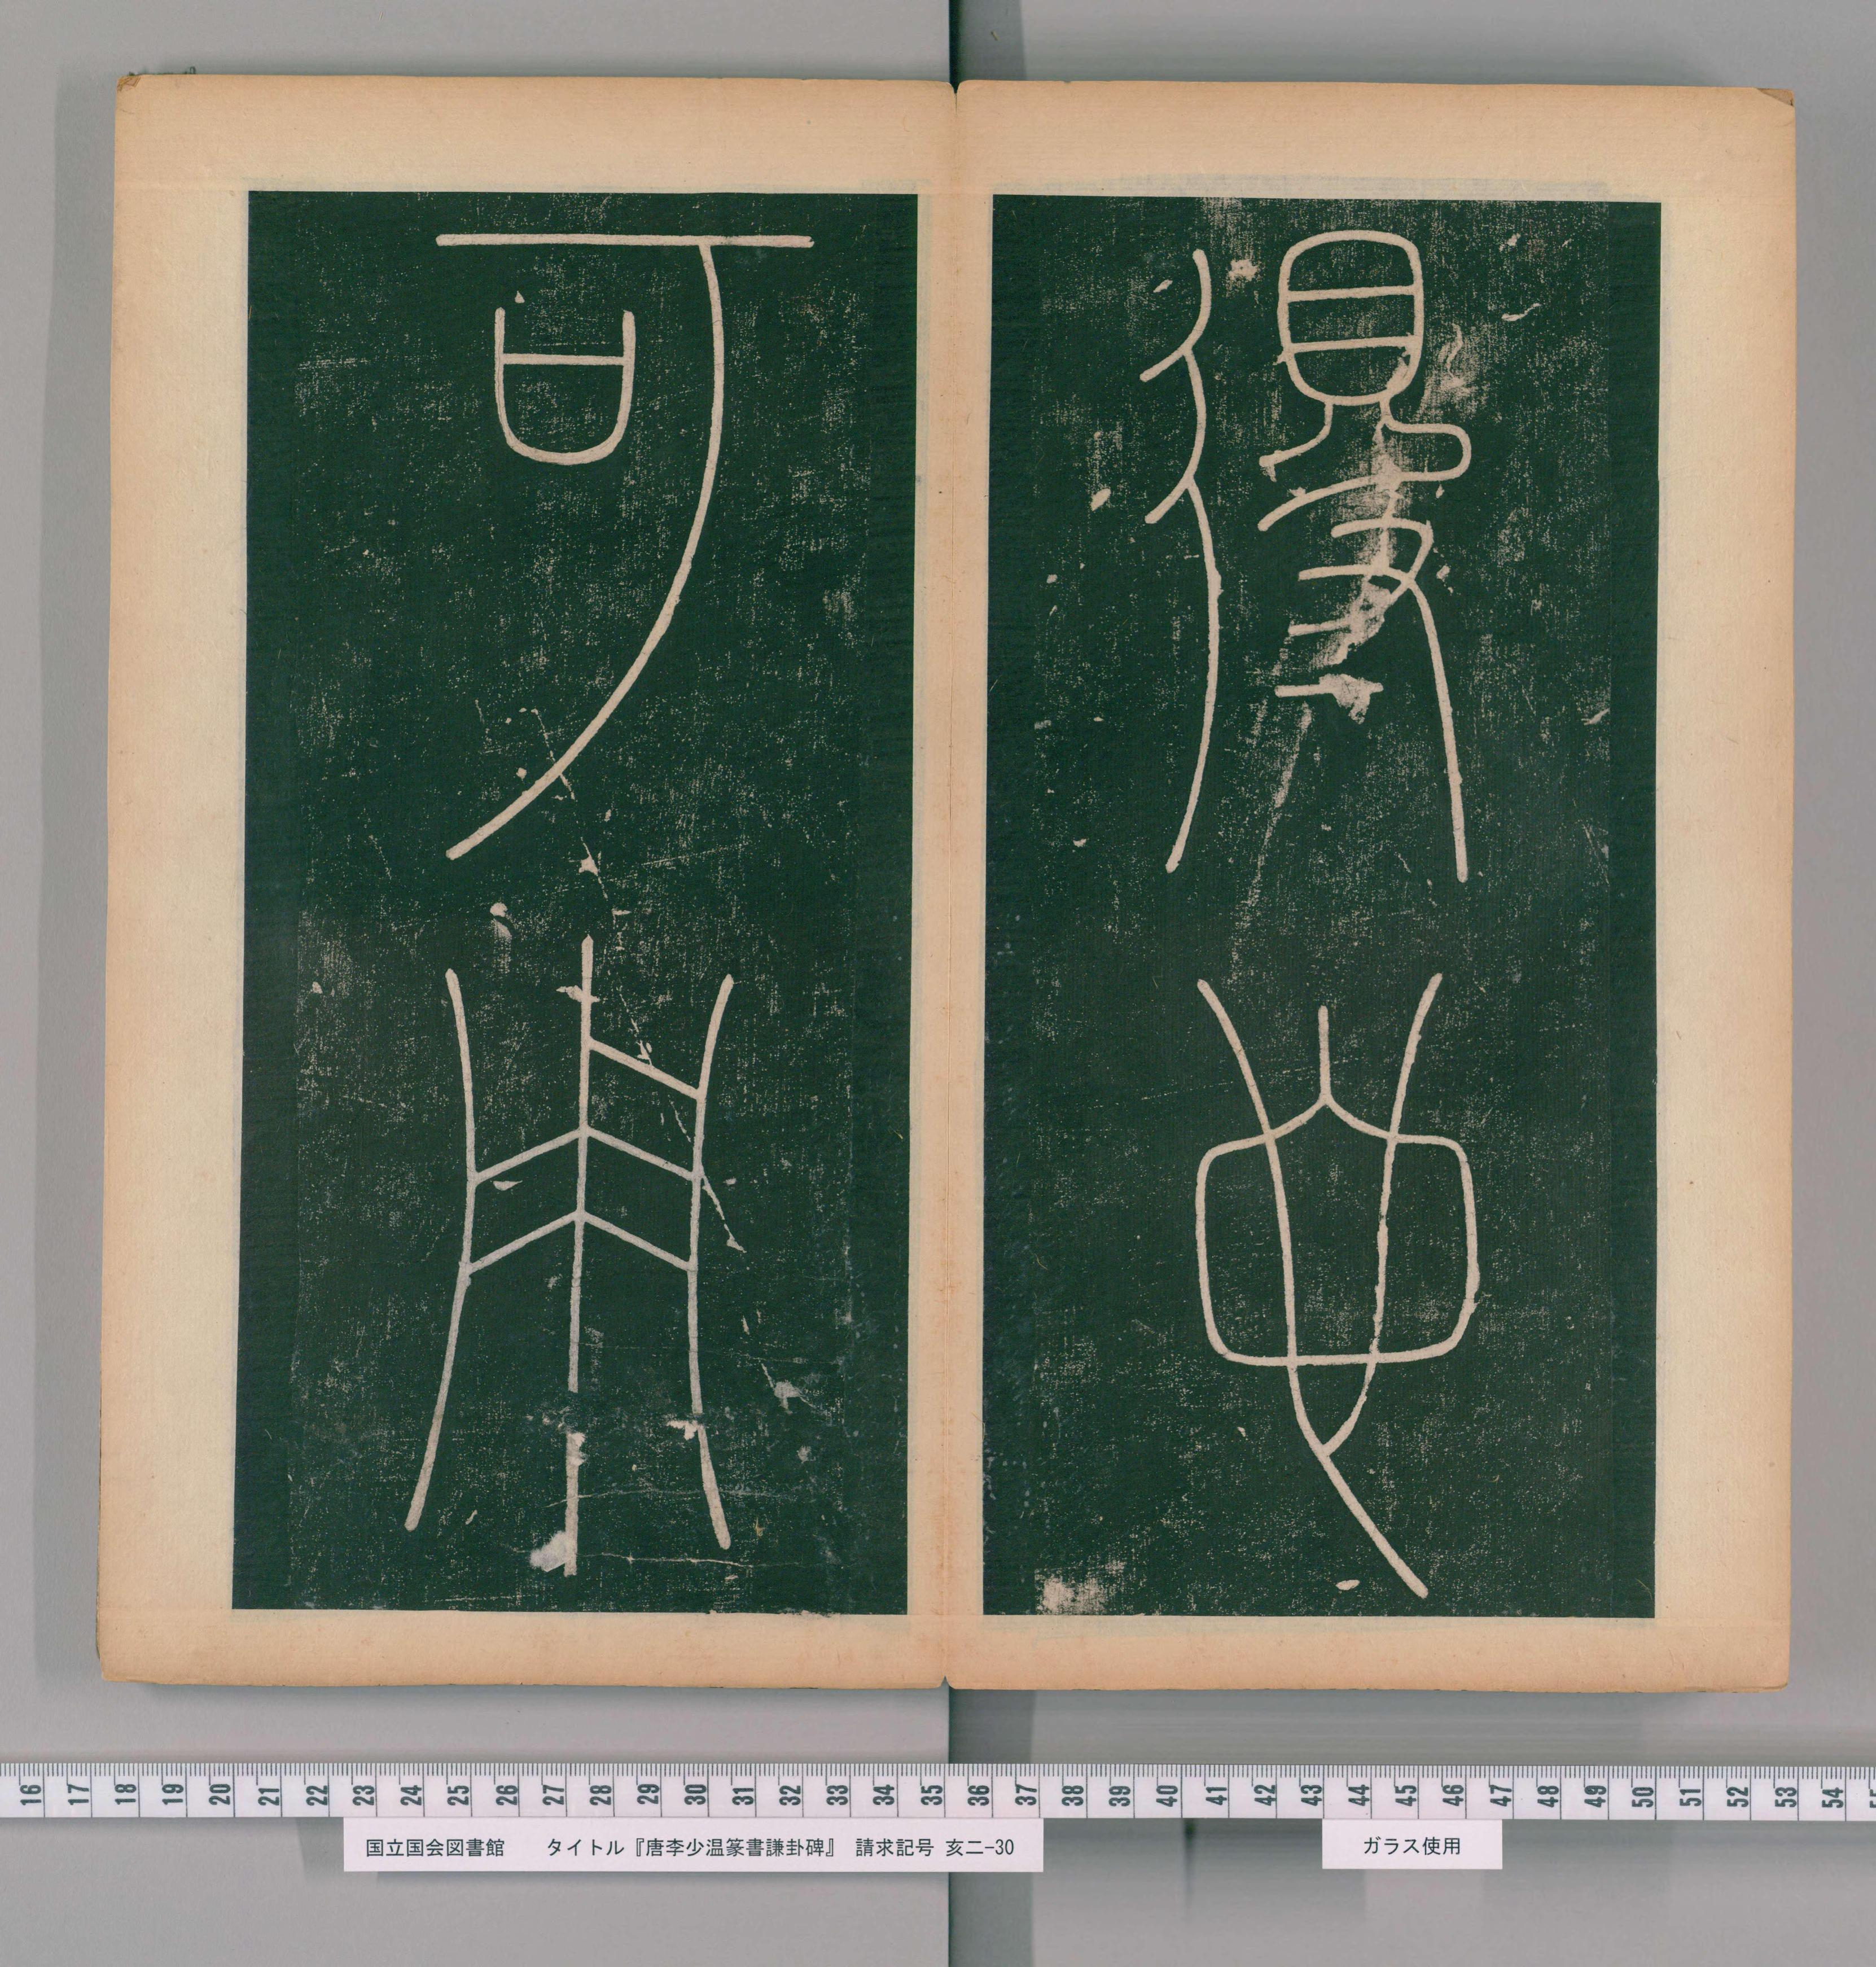 得也
可用
16 17 18 19 20 21 22 23 24 25 26 27 28 29 30 31 32 33 34 35 36 37 38 39 40 41 42 43 44 45 46 47 48 49 50 51 52 53 54
国立国会図書館 タイトル『唐李少温篆書謙卦碑』 請求記号 亥二-30
ガラス使用